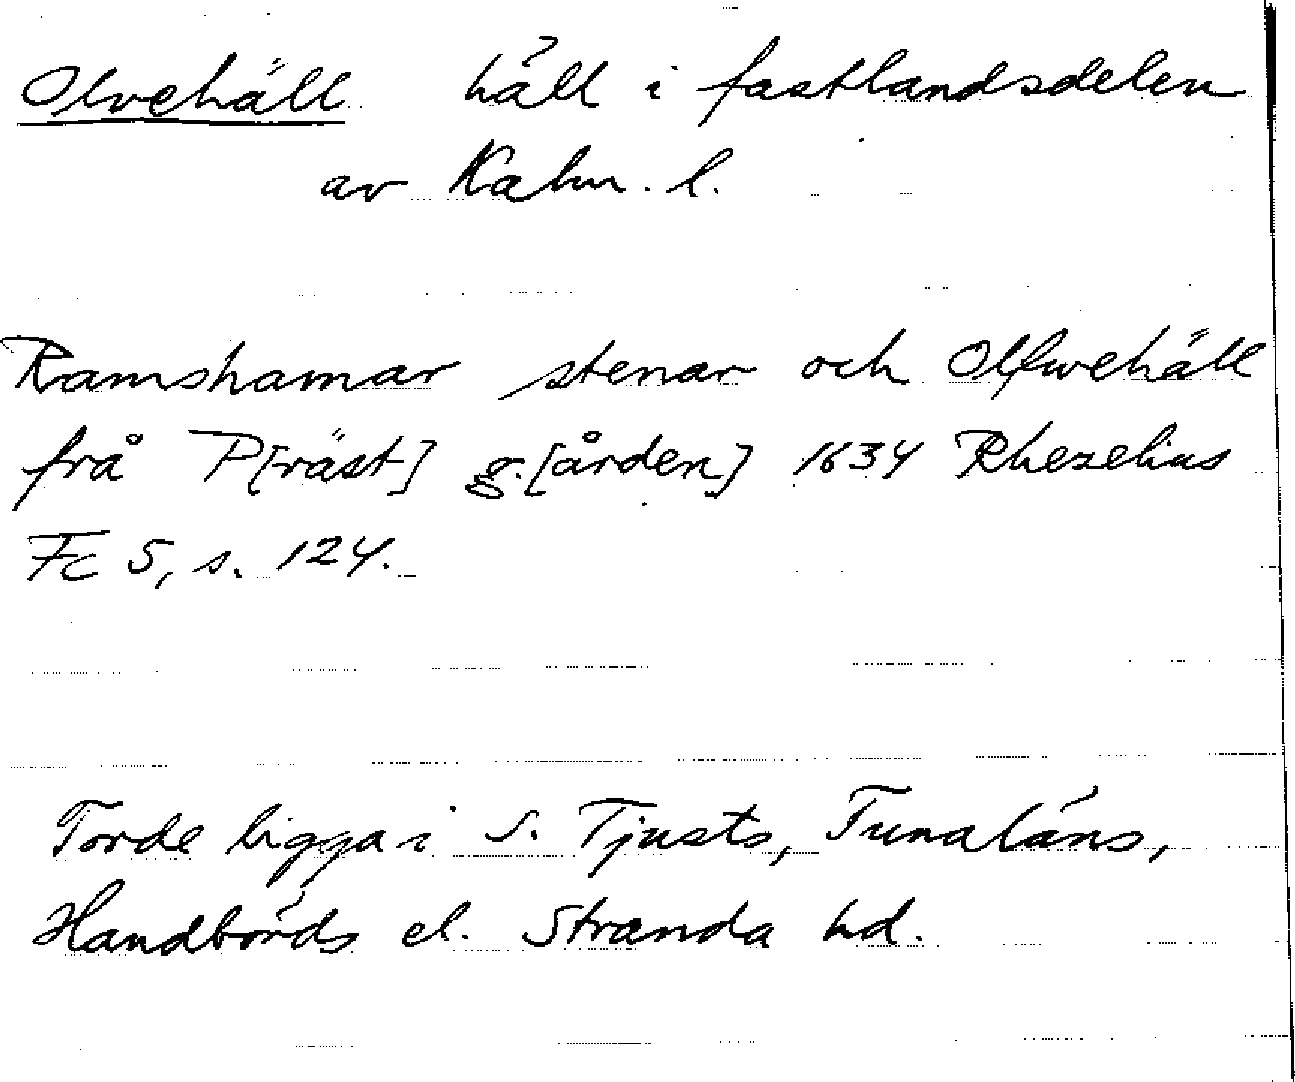 Olvehäll häll i fastlandsdelen
av Kalm. l.
Ramshamar stenar och Olfwehäll
frå P[räst] g.[ården] 1634 Rhezelius
Fc 5, s. 124.
Torde ligga i S. Tjusts, Tunaläns,
Handbörds el. Stranda hd.